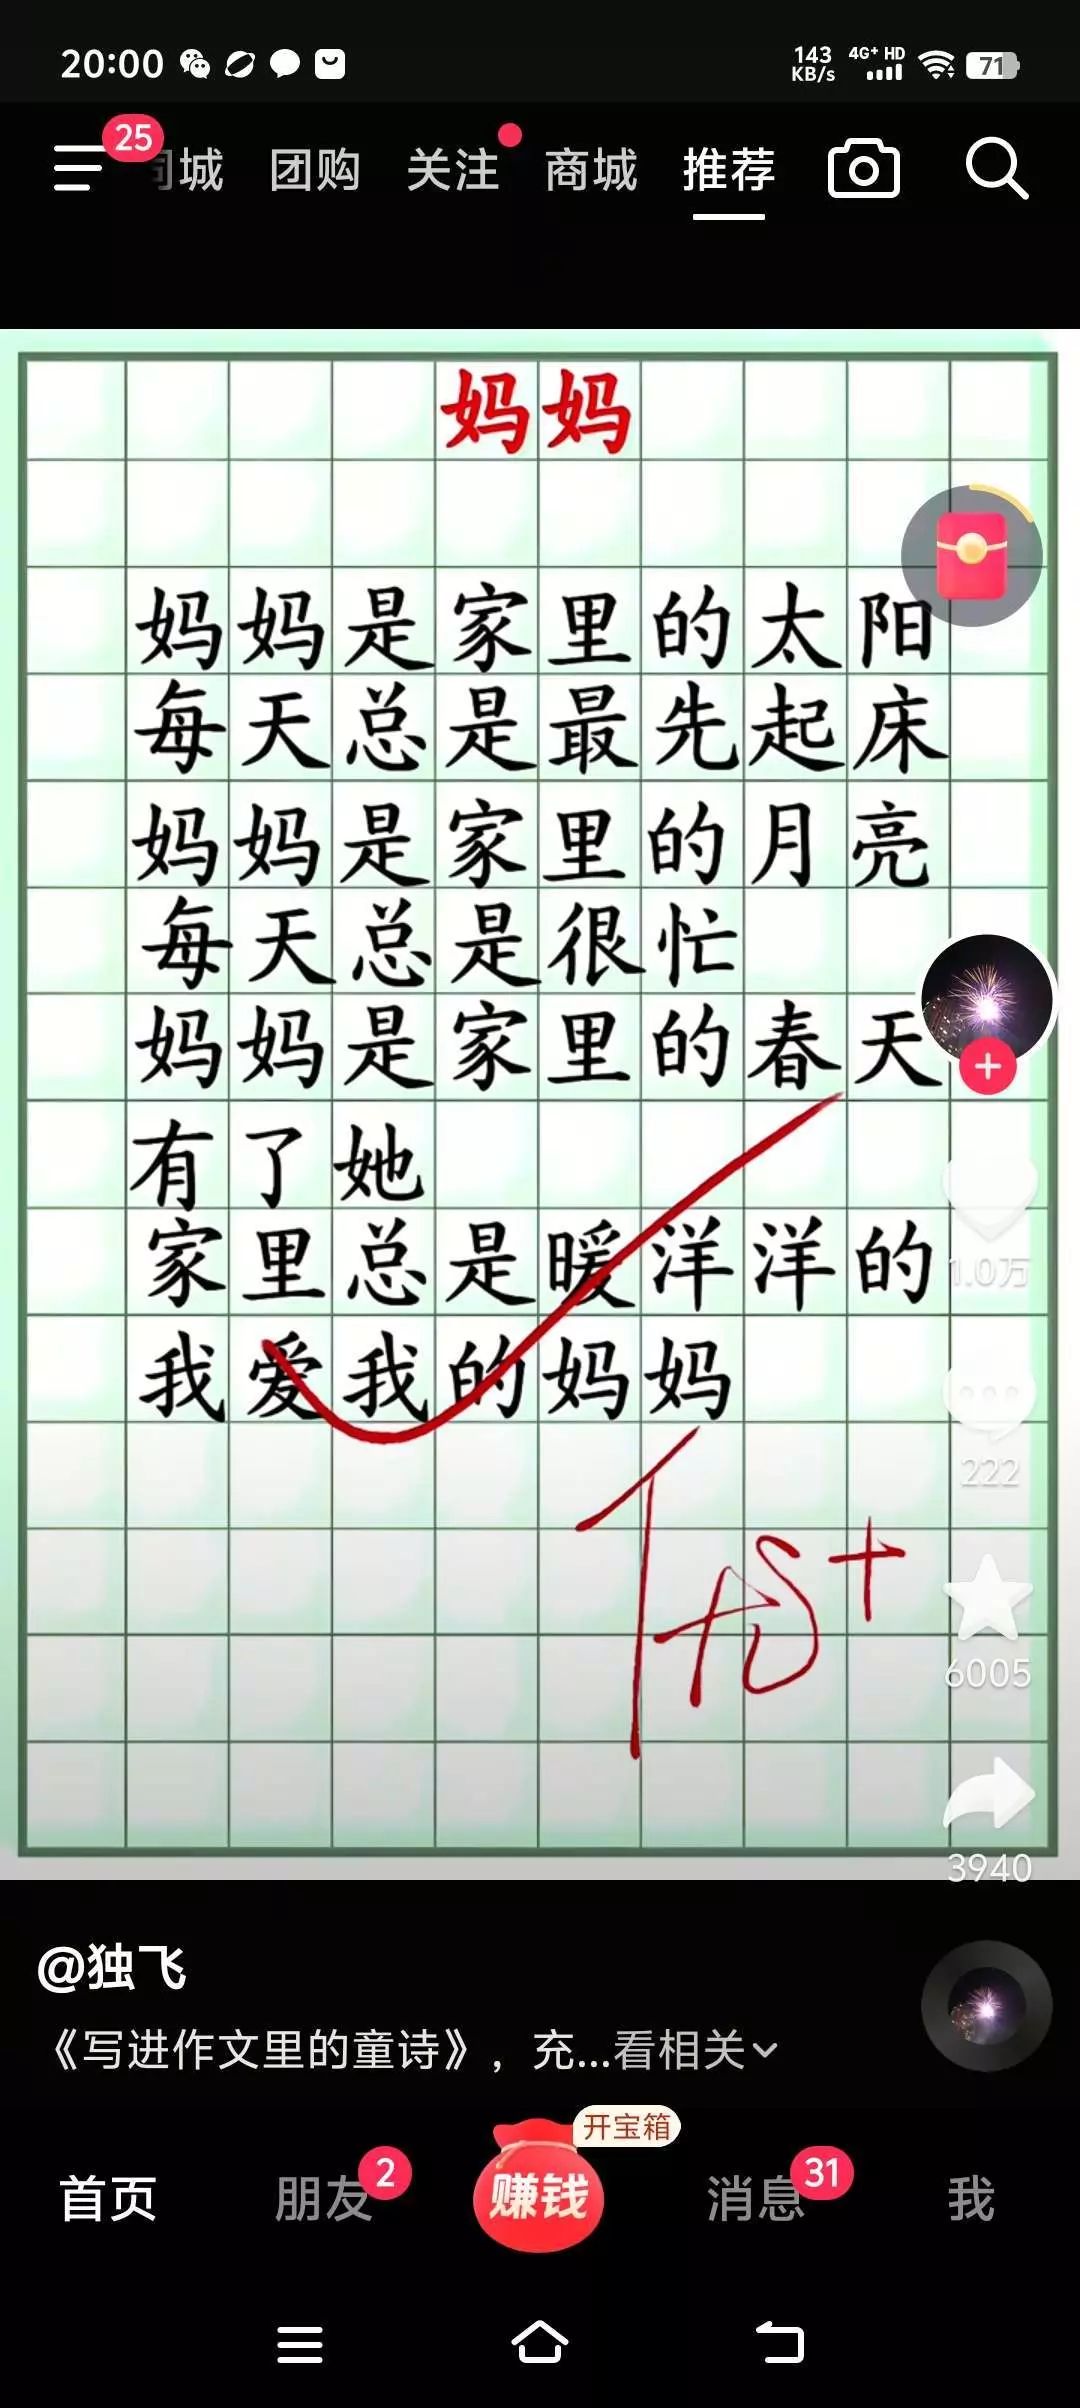 20:00
143 KB/s
4G+ HD
71
25
同城 团购 关注 商城 推荐
妈妈
妈妈是家里的太阳
每天总是最先起床
妈妈是家里的月亮
每天总是很忙
妈妈是家里的春天
有了她
家里总是暖洋洋的
我爱我的妈妈
1.0万
222
6005
3940
@独飞
《写进作文里的童诗》，充...看相关
开宝箱
首页 朋友 2 赚钱 消息 31 我